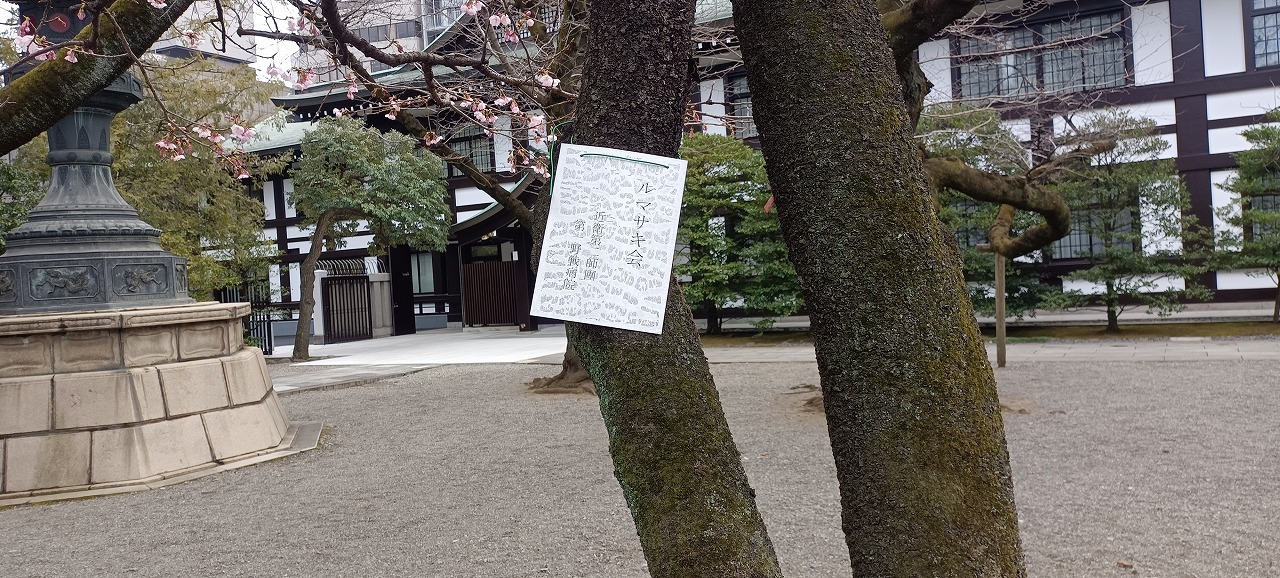 ルマサキ会
近衛第 師団
第 野戦病院